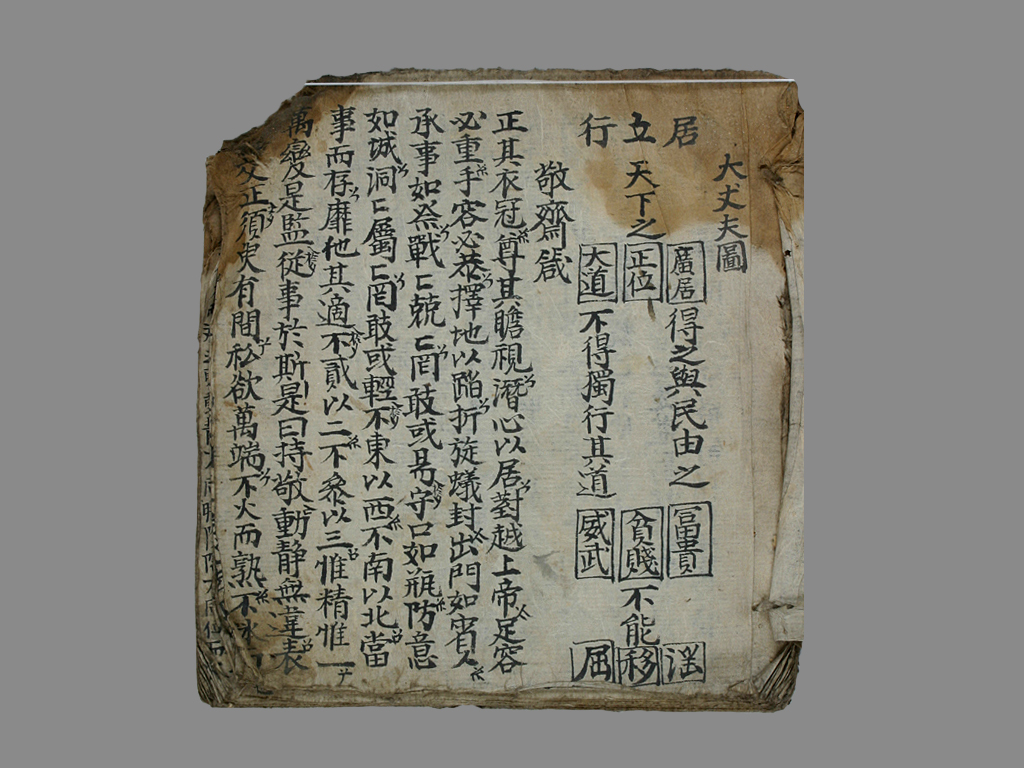 大丈夫圖
居 廣居 得之與民由之 富貴 淫
立 天下之 正位 貧賤 不能 移
行 大道 不得獨行其道 威武 屈
敬齋箴
正其衣冠尊其瞻視潛心以居對越上帝足容
必重手容必恭擇地以蹈折旋蟻封出門如賓
承事如祭戰〻兢〻罔敢或易守口如瓶防意
如城洞〻屬〻罔敢或輕不東以西不南以北當
事而存靡他其適不貳以二不參以三惟精惟一
萬變是監從事於斯是曰持敬動靜無違表
交正須臾有間私欲萬端不火而熟不氷而